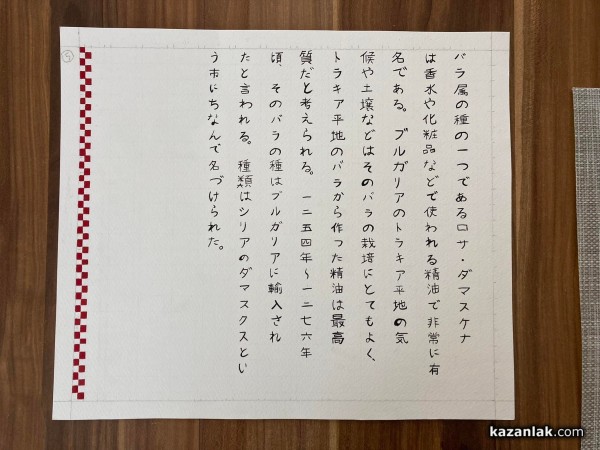 バラ属の種の一つであるロサ・ダマスケナ
は香水や化粧品などで使われる精油で非常に有
名である。ブルガリアのトラキア平地の気
候や土壌などはそのバラの栽培にとてもよく、
トラキア平地のバラから作った精油は最高
質だと考えられる。一二五四年~一二七六年
頃、そのバラの種はブルガリアに輸入され
たと言われる。種類はシリアのダマスクスとい
う市にちなんで名づけられた。
kazanlak.com